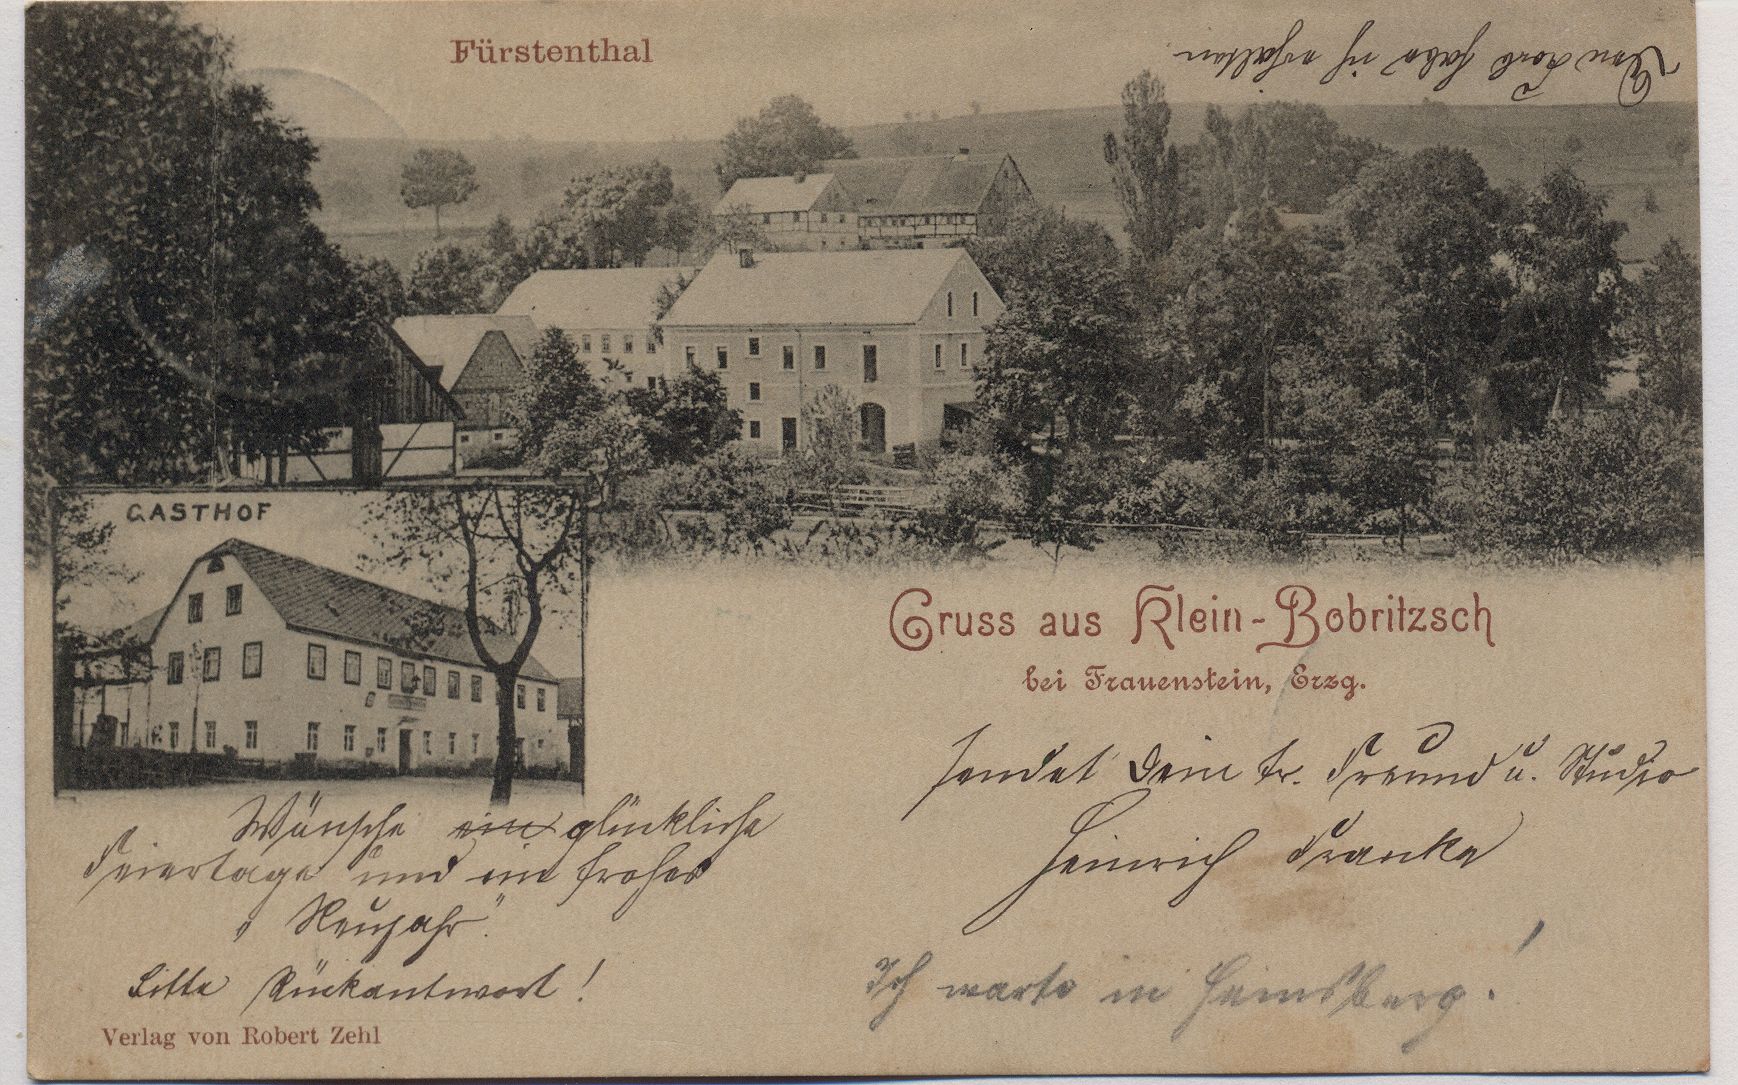 Fürstenthal
Den Korb habe ich erhalten.
GASTHOF
Gruss aus Klein-Bobritzsch
bei Frauenstein, Erzg.
sendet Dein tr. Freund u. Studio
Heinrich Franke
Wünsche ein glückliche
Feiertage und ein frohes
„Neujahr“.
Bitte Rückantwort!
Ich warte in Hainsberg!
Verlag von Robert Zehl